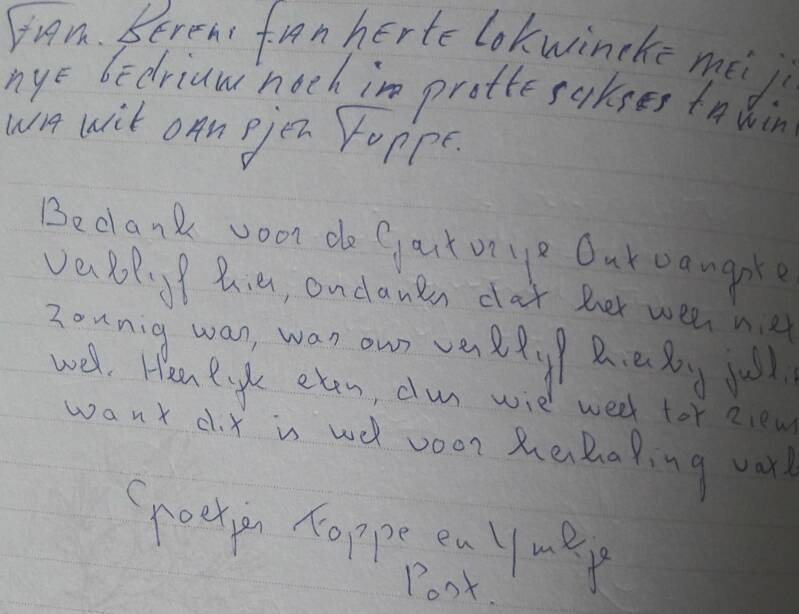 Fam. Berens fan herte lokwinske mei ji
nye bedriuw noch in protte sukses ta win
WA wit oan sjen Foppe.
Bedank voor de Gastvrije Ontvangst e
verblijf hier, ondanks dat het weer niet
zonnig was, was ons verblijf hier bij julli
wel. Heerlijk eten, dus wie weet tot ziens
want dit is wel voor herhaling vatb
Groetjes Foppe en Ymkje
Post.